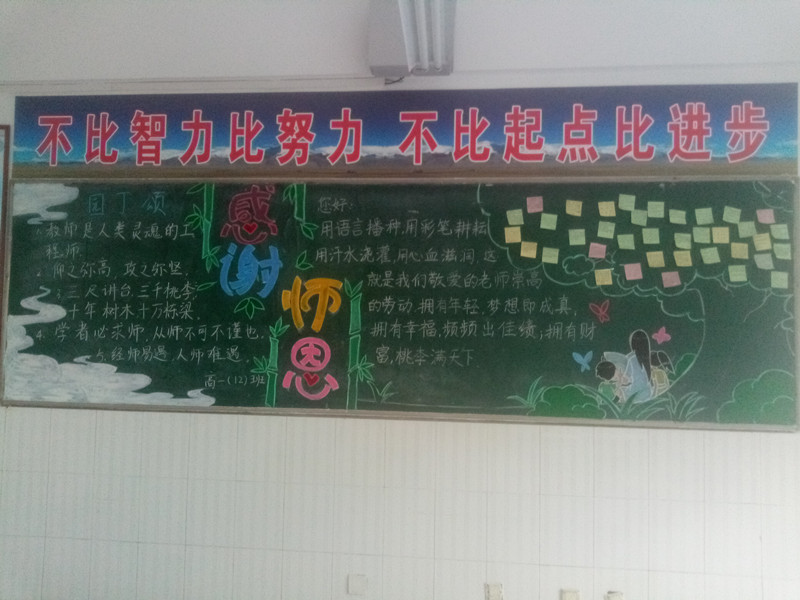 不比智力比努力 不比起点比进步
园丁颂
1. 教师是人类灵魂的工
程师.
2. 仰之弥高, 攻之弥坚.
3. 三尺讲台三千桃李.
十年树木十万栋梁.
4. 学者必求师, 从师不可不谨也.
5. 经师易遇 人师难遇.
高一(12)班
感
谢
师
恩
您好:
用语言播种,用彩笔耕耘
用汗水浇灌,用心血滋润,这
就是我们敬爱的老师崇高
的劳动,拥有年轻,梦想即成真,
拥有幸福,频频出佳绩,拥有财
富,桃李满天下.